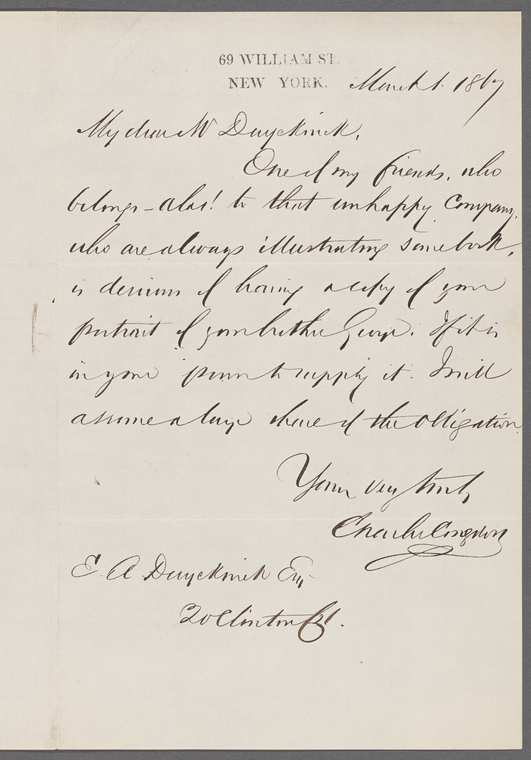 69 WILLIAM ST.
NEW YORK.
March 1. 1867
My dear Mr Duyckinck,
One of my friends, who
belongs - alas! to that unhappy Company,
who are always illustrating some book,
is desirous of having a copy of your
portrait of your brother George. If it is
in your power to supply it. I will
assume a large share of the obligation.
Yours very truly
Charles Congdon
E. A. Duyckinck Esq
20 Clinton Pl.